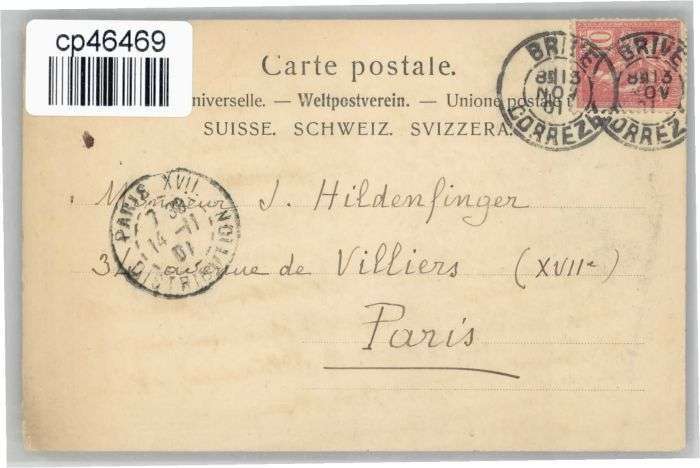 cp46469
Carte postale.
niverselle. — Weltpostverein. — Unione postale
SUISSE. SCHWEIZ. SVIZZERA.
BRIVE
13
NOV
01
CORREZE
BRIVE
13
NOV
01
CORREZE
10
PARIS XVII
7 30
14 - 11
01
DISTRIBUTION
Monsieur J. Hildenfinger
avenue de Villiers (XVIIe)
Paris